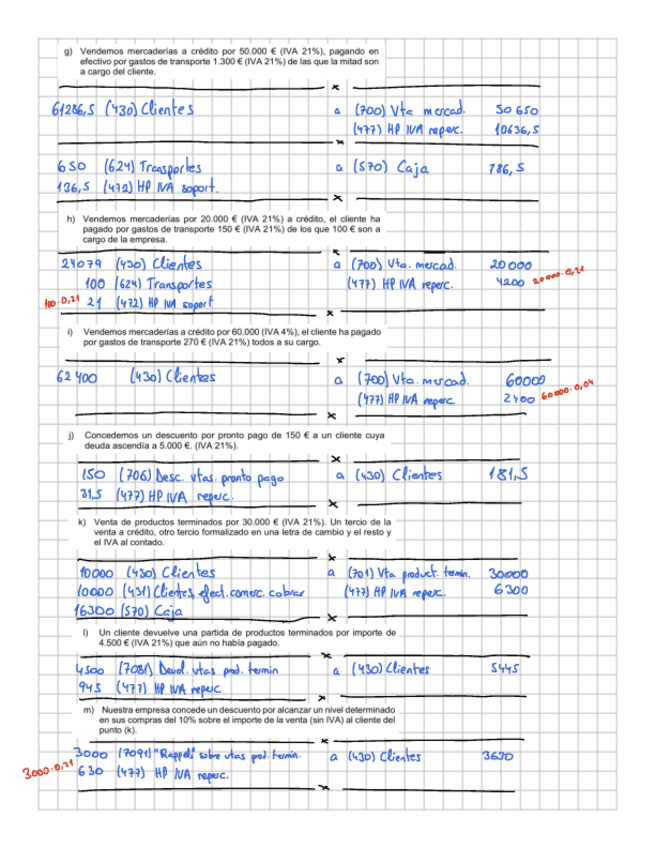 g) Vendemos mercaderías a crédito por 50.000 € (IVA 21%), pagando en
efectivo por gastos de transporte 1.300 € (IVA 21%) de las que la mitad son
a cargo del cliente.
61286,5 (430) Clientes a (700) Vta mercad. 50 650
(477) HP IVA reperc. 10636,5
650 (624) Transportes a (570) Caja 786,5
136,5 (472) HP IVA soport.
h) Vendemos mercaderías por 20.000 € (IVA 21%) a crédito, el cliente ha
pagado por gastos de transporte 150 € (IVA 21%) de los que 100 € son a
cargo de la empresa.
24079 (430) Clientes a (700) Vta. mercad. 20000
100 (624) Transportes (477) HP IVA reperc. 4200 20000·0,21
100·0,21 21 (472) HP IVA soport
i) Vendemos mercaderías a crédito por 60.000 (IVA 4%), el cliente ha pagado
por gastos de transporte 270 € (IVA 21%) todos a su cargo.
62400 (430) Clientes a (700) Vta. mercad. 60000
(477) HP IVA reperc. 2400 60000·0,04
j) Concedemos un descuento por pronto pago de 150 € a un cliente cuya
deuda ascendía a 5.000 €. (IVA 21%).
150 (706) Desc. vtas. pronto pago a (430) Clientes 181,5
31,5 (477) HP IVA reperc.
k) Venta de productos terminados por 30.000 € (IVA 21%). Un tercio de la
venta a crédito, otro tercio formalizado en una letra de cambio y el resto y
el IVA al contado.
10000 (430) Clientes a (701) Vta product. termin. 30000
10000 (431) Clientes, efect. comerc. cobrar (477) HP IVA reperc. 6300
16300 (570) Caja
l) Un cliente devuelve una partida de productos terminados por importe de
4.500 € (IVA 21%) que aún no había pagado.
4500 (7081) Devol. vtas prod. termin a (430) Clientes 5445
945 (477) HP IVA reperc
m) Nuestra empresa concede un descuento por alcanzar un nivel determinado
en sus compras del 10% sobre el importe de la venta (sin IVA) al cliente del
punto (k).
3000 (7091) "Rappels" sobre vtas prod. termin. a (430) Clientes 3630
3000·0,21 630 (477) HP IVA reperc.